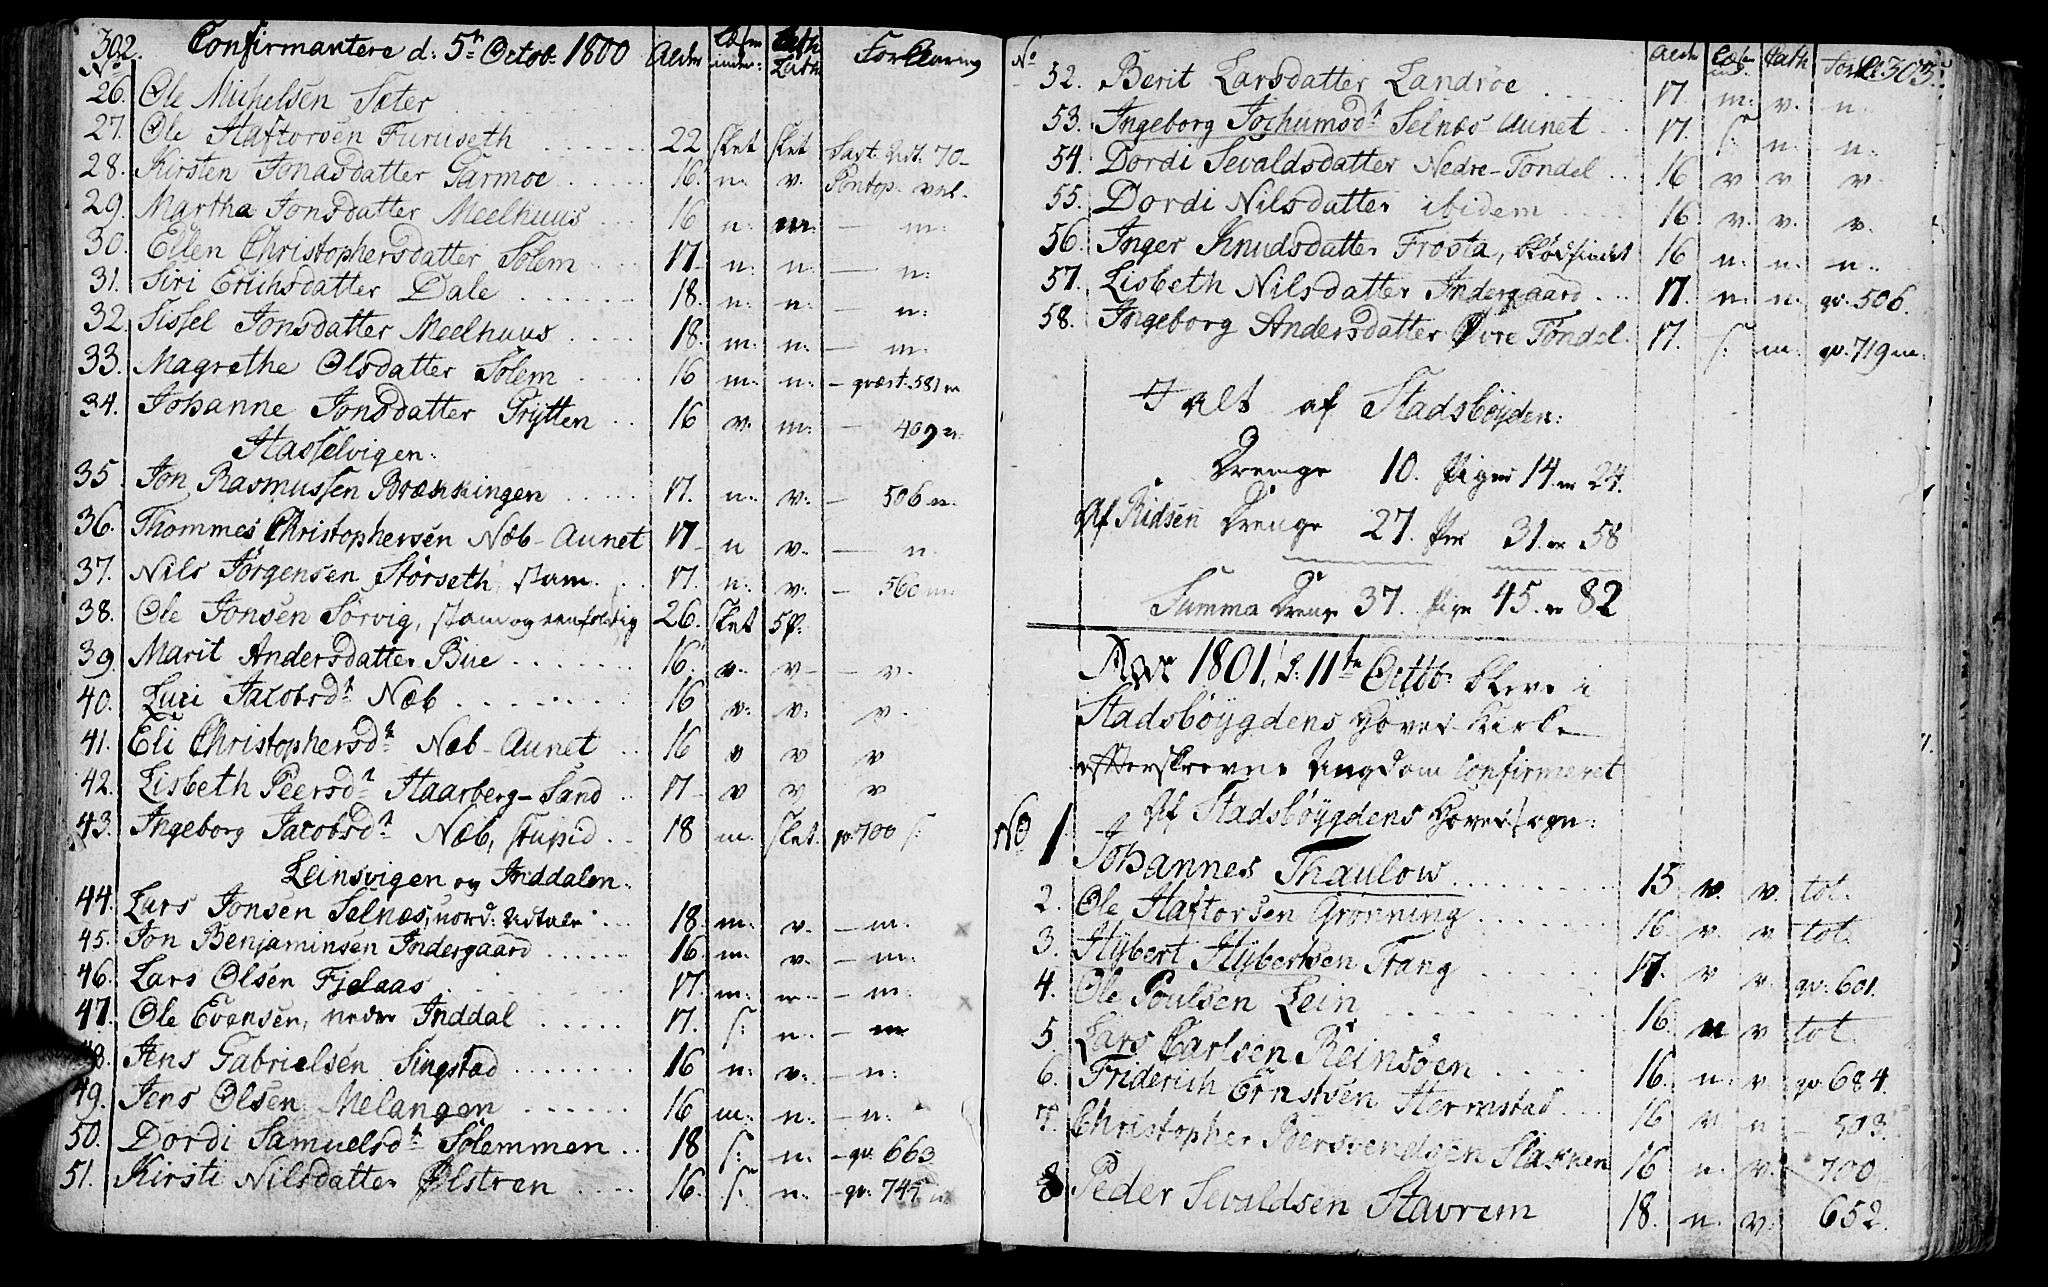 302. Confirmantere d: 5te Octob: 1800 Alder Læsn inden: Cath Luth Forklaring
No
26. Ole Michelsen Sæter
27. Ole Haftorsen Furuseth 22 slet slet
28. Kirsten Jonasdatter Garmoe 16. n: v. Pontop. vel.
29. Martha Jonsdatter Meelhuus 16 n: m: — m:
30. Ellen Christophersdatter Solem 17 n: n: — n:
31. Siri Erichsdatter Dale 18. n: n: — n:
32. Sissel Jonsdatter Meelhuus 18. m: n: — m:
33. Magrethe Olsdatter Solem 16 m: n: — qvæst. 581 n
34. Johanne Jonsdatter Frytten 16 v. m: — 409 n.
Hasselvigen.
35. Jon Rasmussen Brækkingen 17. n: v. — 506 n.
36. Thommes Christophersen Næb-Aunet 17 n v. — n.
37. Nils Jørgensen Størseth, stam. 17. n: v. — 560 m:
38. Ole Jonsen Sørvig, stam og eenfoldig 26. slet sp.
39. Marit Andersdatter Bue 16. v. v — v.
40. Luci Jacobsdr Næb 16 v. v. v.
41. Eli Christophersdr Næb-Aunet 16 v v v
42. Lisbeth Peersdr Haarberg-Sand 17 v v v
43. Ingeborg Jacobsdr Næb, stupid 18 m. slet. qv 700 s:
Leinsvigen og Inddalen.
44. Lars Jonsen Selnæs, uord: Udtale 18. m: v. — m:
45. Jon Benjaminsen Indergaard 16. m: v. — m:
46. Lars Olsen Fjelaas 17. m: n. — m:
47. Ole Evensen, nedre Inddal 17. s: n. — m
48. Jens Gabrielsen Singstad 16 n: v. — n:
49. Jens Olsen Melangen 16 m: n: — n:
50. Dordi Samuelsdr Solemmen 18 s: n: — qv. 663
51. Kirsti Nilsdatter Ølstren 16. s: n. — qv. 745
No Alder Læs ind. Cath Forkl. 303.
52. Berit Larsdatter Landrøe 17. m: v. n:
53. Ingeborg Jochumsdr Selnæs Aunet 17. s: n. n:
54. Dordi Sevaldsdatter Nedre-Tøndel 16 v v v
55. Dordi Nilsdatter ibidem 16. v. v. v.
56. Inger Knudsdatter Frosta, blødsindet 16 n: n: n:
57. Lisbeth Nilsdatter Indergaard 17. n: n: qv. 506.
58. Ingeborg Andersdatter Øvre Tøndel 17. s: m: qv. 719 m.
I alt af Stadsbøyden:
Drenge 10. Piger 14. er 24.
Af Ridsen Drenge 27. Per 31. er 58
Summa Drenge 37. Pige 45. er 82
Aar 1801, d: 11te Octob: bleve i
Stadsbøygdens Hoved Kirke
efterskrevne Ungdom Confirmeret
Af Stadsbøygdens Hovedsogn:
No 1. Johannes Thaulow 15 v. v. tot.
2. Ole Haftorsen Grønning 16. v. v tot.
3. Hybert Hybertsen Frang 17. v v. qv. 601.
4. Ole Poulsen Lein 16. n v tot.
5. Lars Carlsen Reinsøen 16. n: v qv. 684.
6. Friderich Ernstsen Hermstad 16 v. n — 593.
7. Christopher Bersvendsen Slakken 16 n. v. 700
8 Peder Sevaldsen Stavrum 18. n. v. 652.